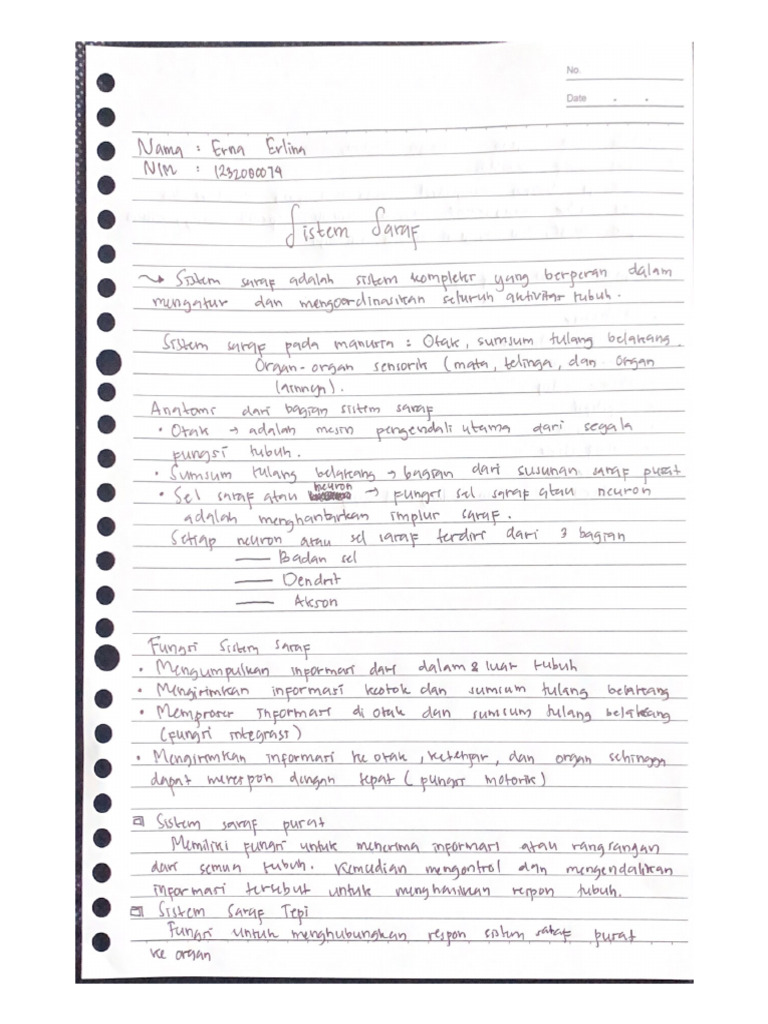 No.
Date . .
Nama : Erna Erlina
NIM : 1232080074
Sistem Saraf
Sistem saraf adalah sistem kompleks yang berperan dalam
mengatur dan mengoordinasikan seluruh aktivitas tubuh.
Sistem saraf pada manusia : Otak, sumsum tulang belakang.
Organ-organ sensorik (mata, telinga, dan organ
lainnya).
Anatomi dari bagian sistem saraf
• Otak → adalah mesin pengendali utama dari segala
fungsi tubuh.
• Sumsum tulang belakang → bagian dari susunan saraf pusat
• Sel saraf atau neuron → fungsi sel saraf atau neuron
adalah menghantarkan implus saraf.
Setiap neuron atau sel saraf terdiri dari 3 bagian
— Badan sel
— Dendrit
— Akson
Fungsi Sistem Saraf
• Mengumpulkan informasi dari dalam & luar tubuh
• Mengirimkan informasi keotak dan sumsum tulang belakang
• Memproses informasi di otak dan sumsum tulang belakang
(fungsi integrasi)
• Mengirimkan informasi ke otak, kelenjar, dan organ sehingga
dapat merespon dengan tepat (fungsi motorik)
Sistem saraf pusat
Memiliki fungsi untuk menerima informasi atau rangsangan
dari semua tubuh. Kemudian mengontrol dan mengendalikan
informasi tersebut untuk menghasilkan respon tubuh.
Sistem Saraf Tepi
Fungsi untuk menghubungkan respon sistem saraf pusat
ke organ